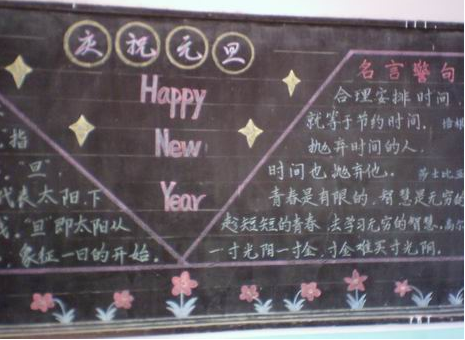 庆祝元旦
Happy
New
Year
指
"旦"
代表太阳,下
"旦"即太阳从
象征一日的开始.
名言警句
合理安排时间,
就等于节约时间.
抛弃时间的人.
时间也抛弃他. 莎士比亚
青春是有限的,智慧是无穷的
趁短短的青春,去学习无穷的智慧.
一寸光阴一寸金,寸金难买寸光阴.